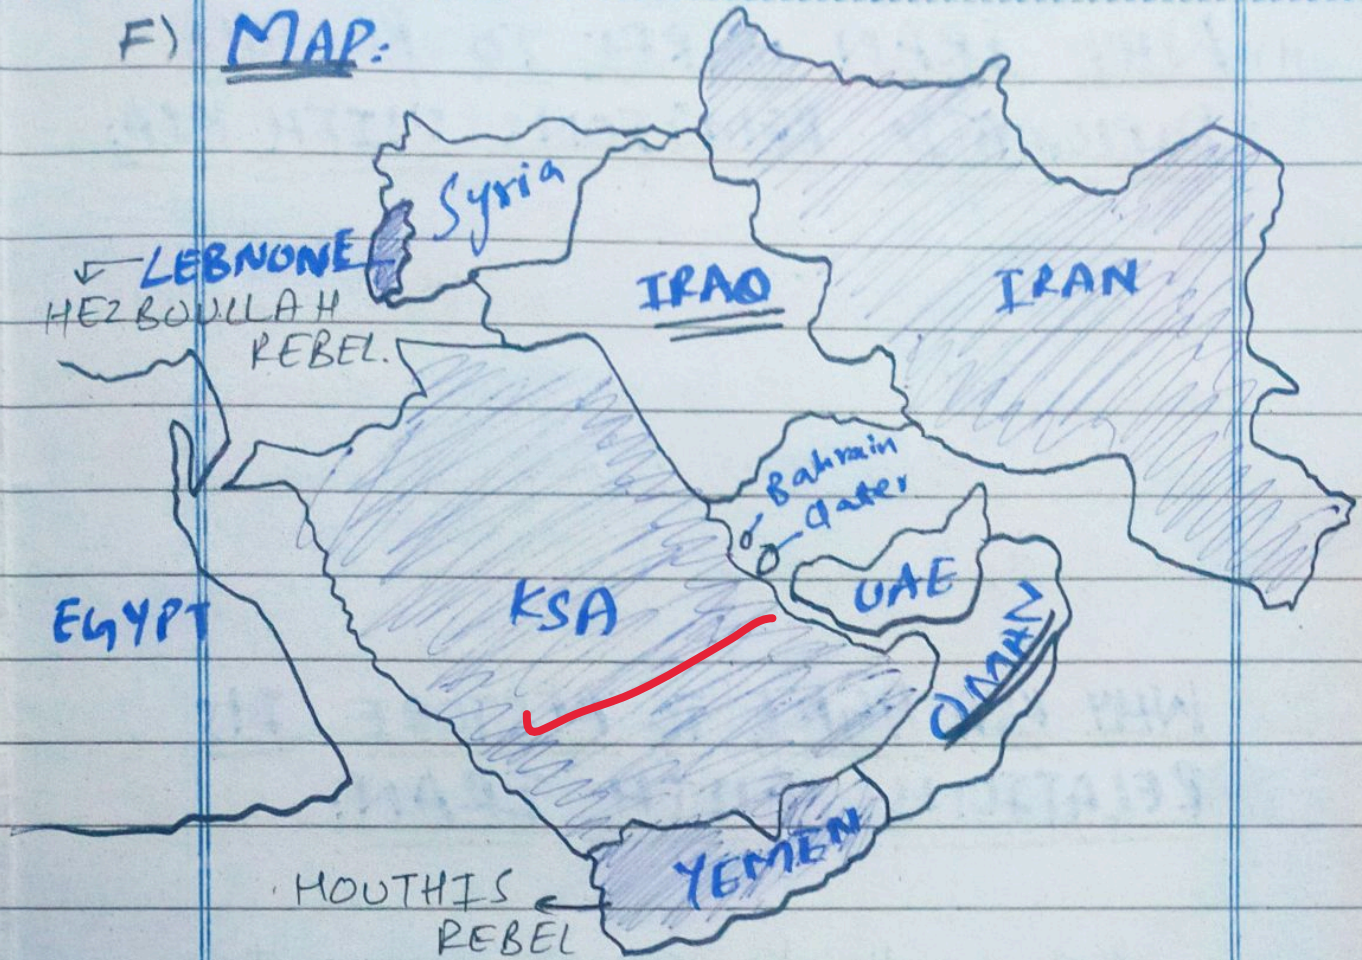 F) MAP:
Syria
LEBNONE
HEZBOULLAH
REBEL.
IRAQ
IRAN
Bahrain
Qater
KSA
UAE
EGYPT
OMAN
YEMEN
HOUTHIS
REBEL